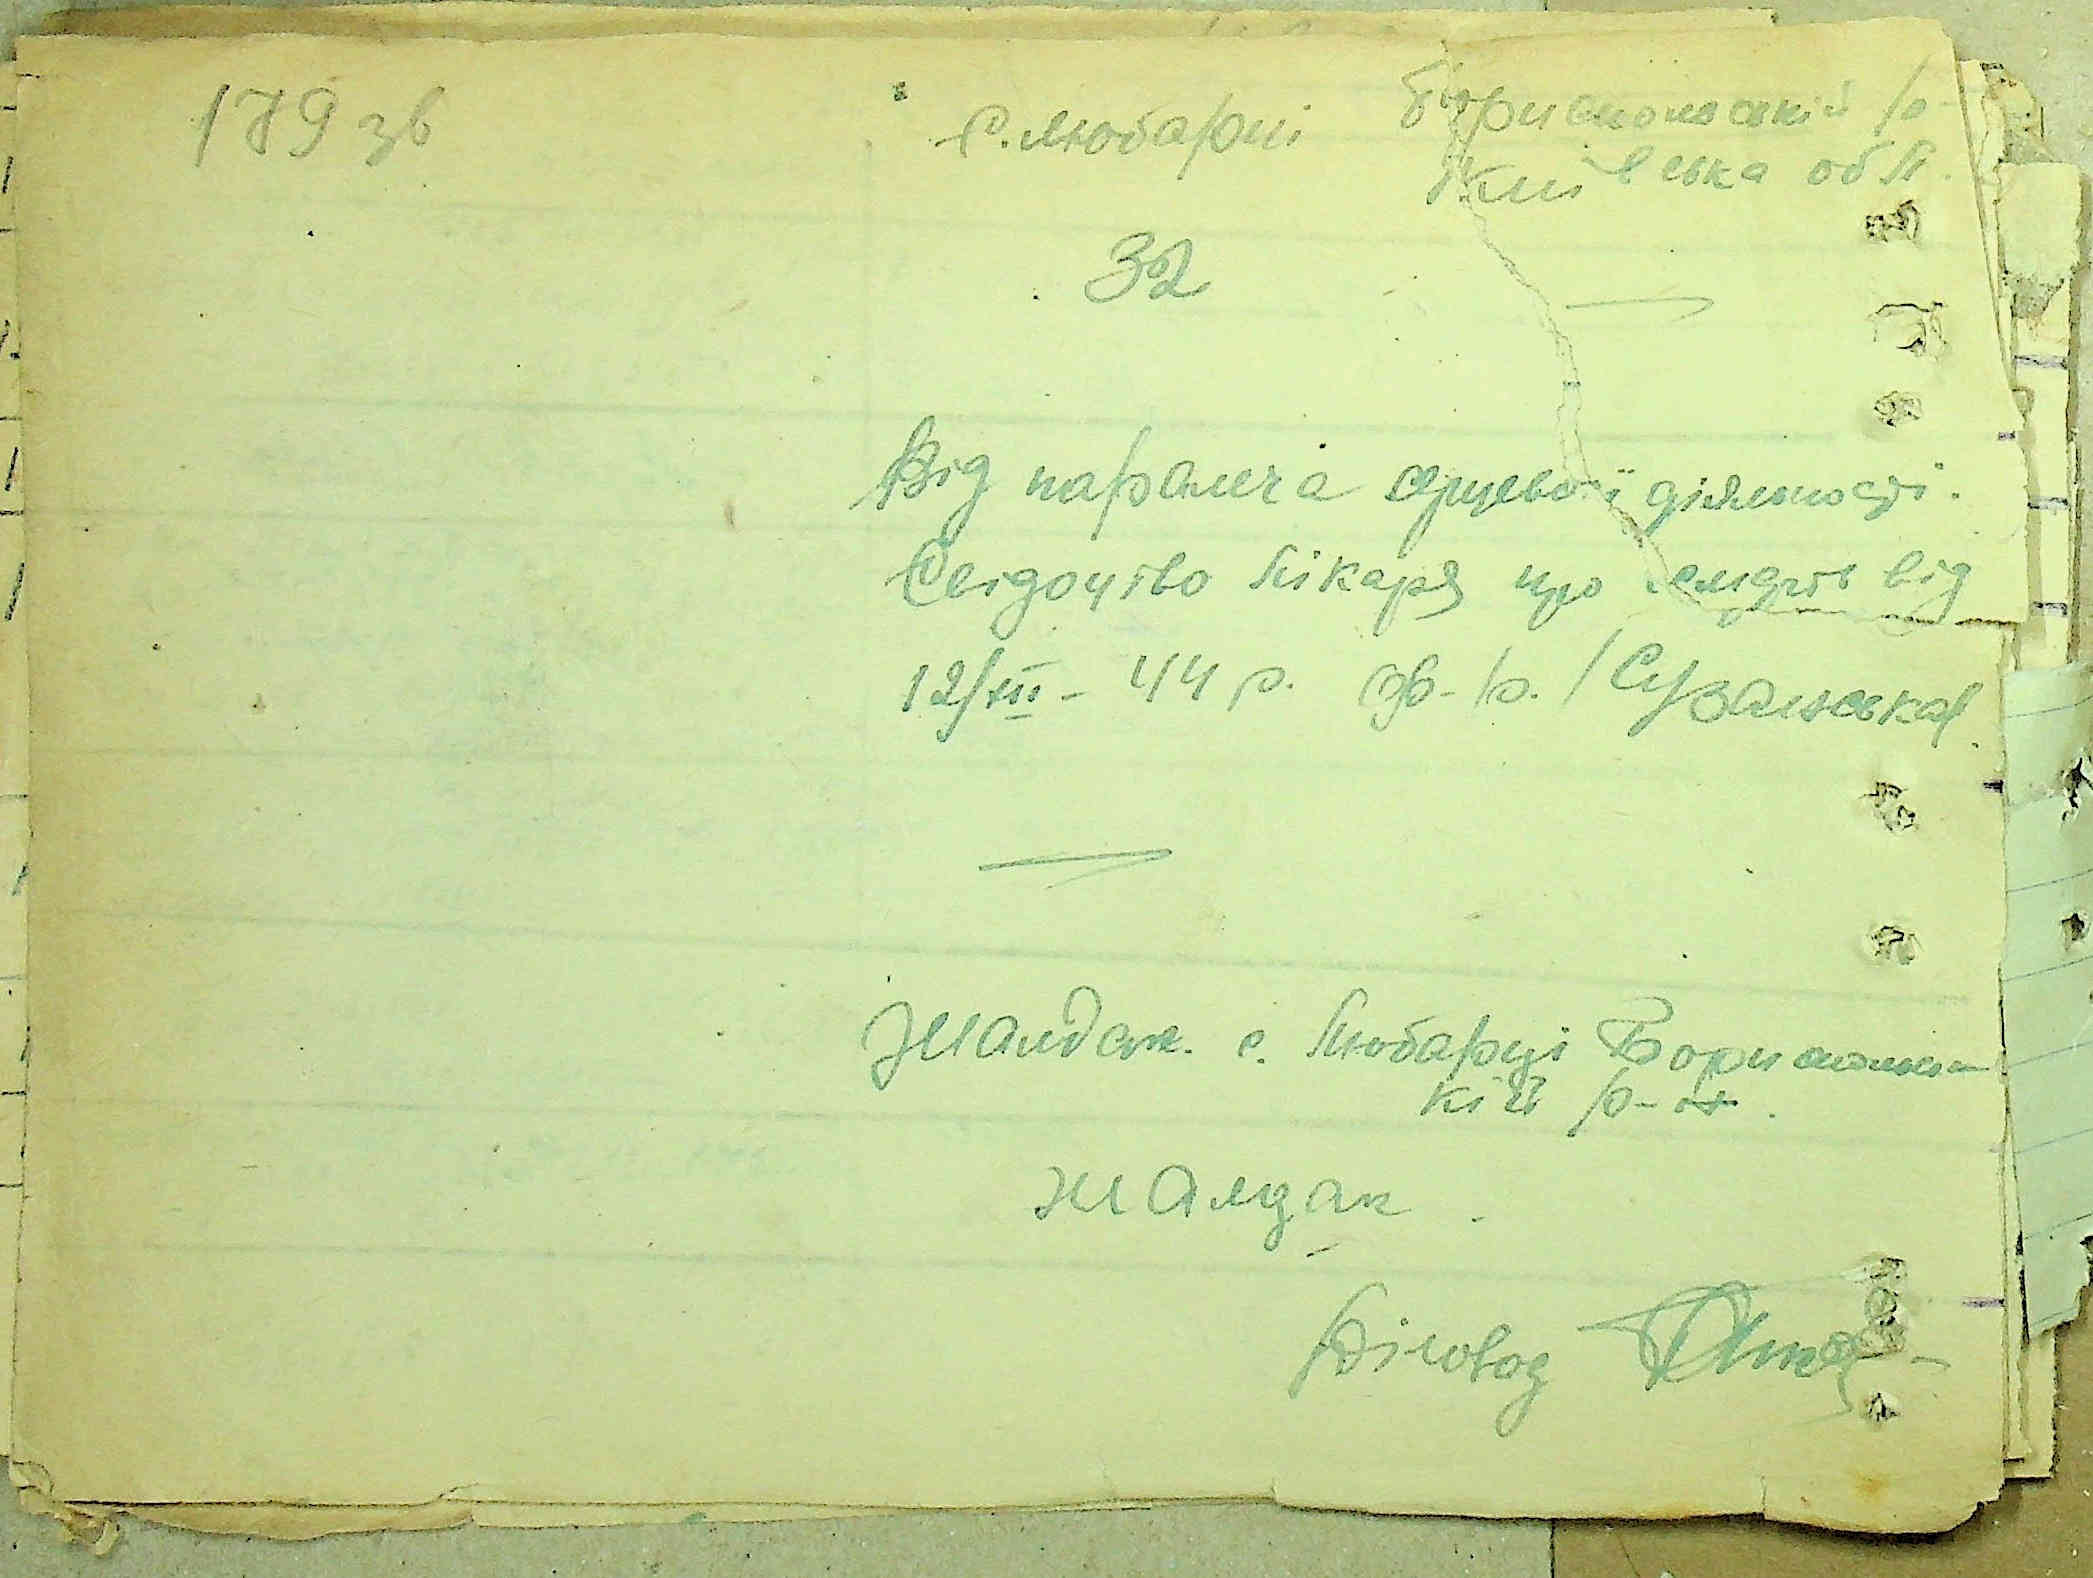 179 зв
с. Любарці Бориспольський р-
Київська обл.
32
Від параліча серцевої діяльності.
Свідоцтво лікаря про смерть від
12/XII - 44 р. 
Жалдак. с. Любарці Бориспольсь
кий р-н.
Жалдак
Діловод